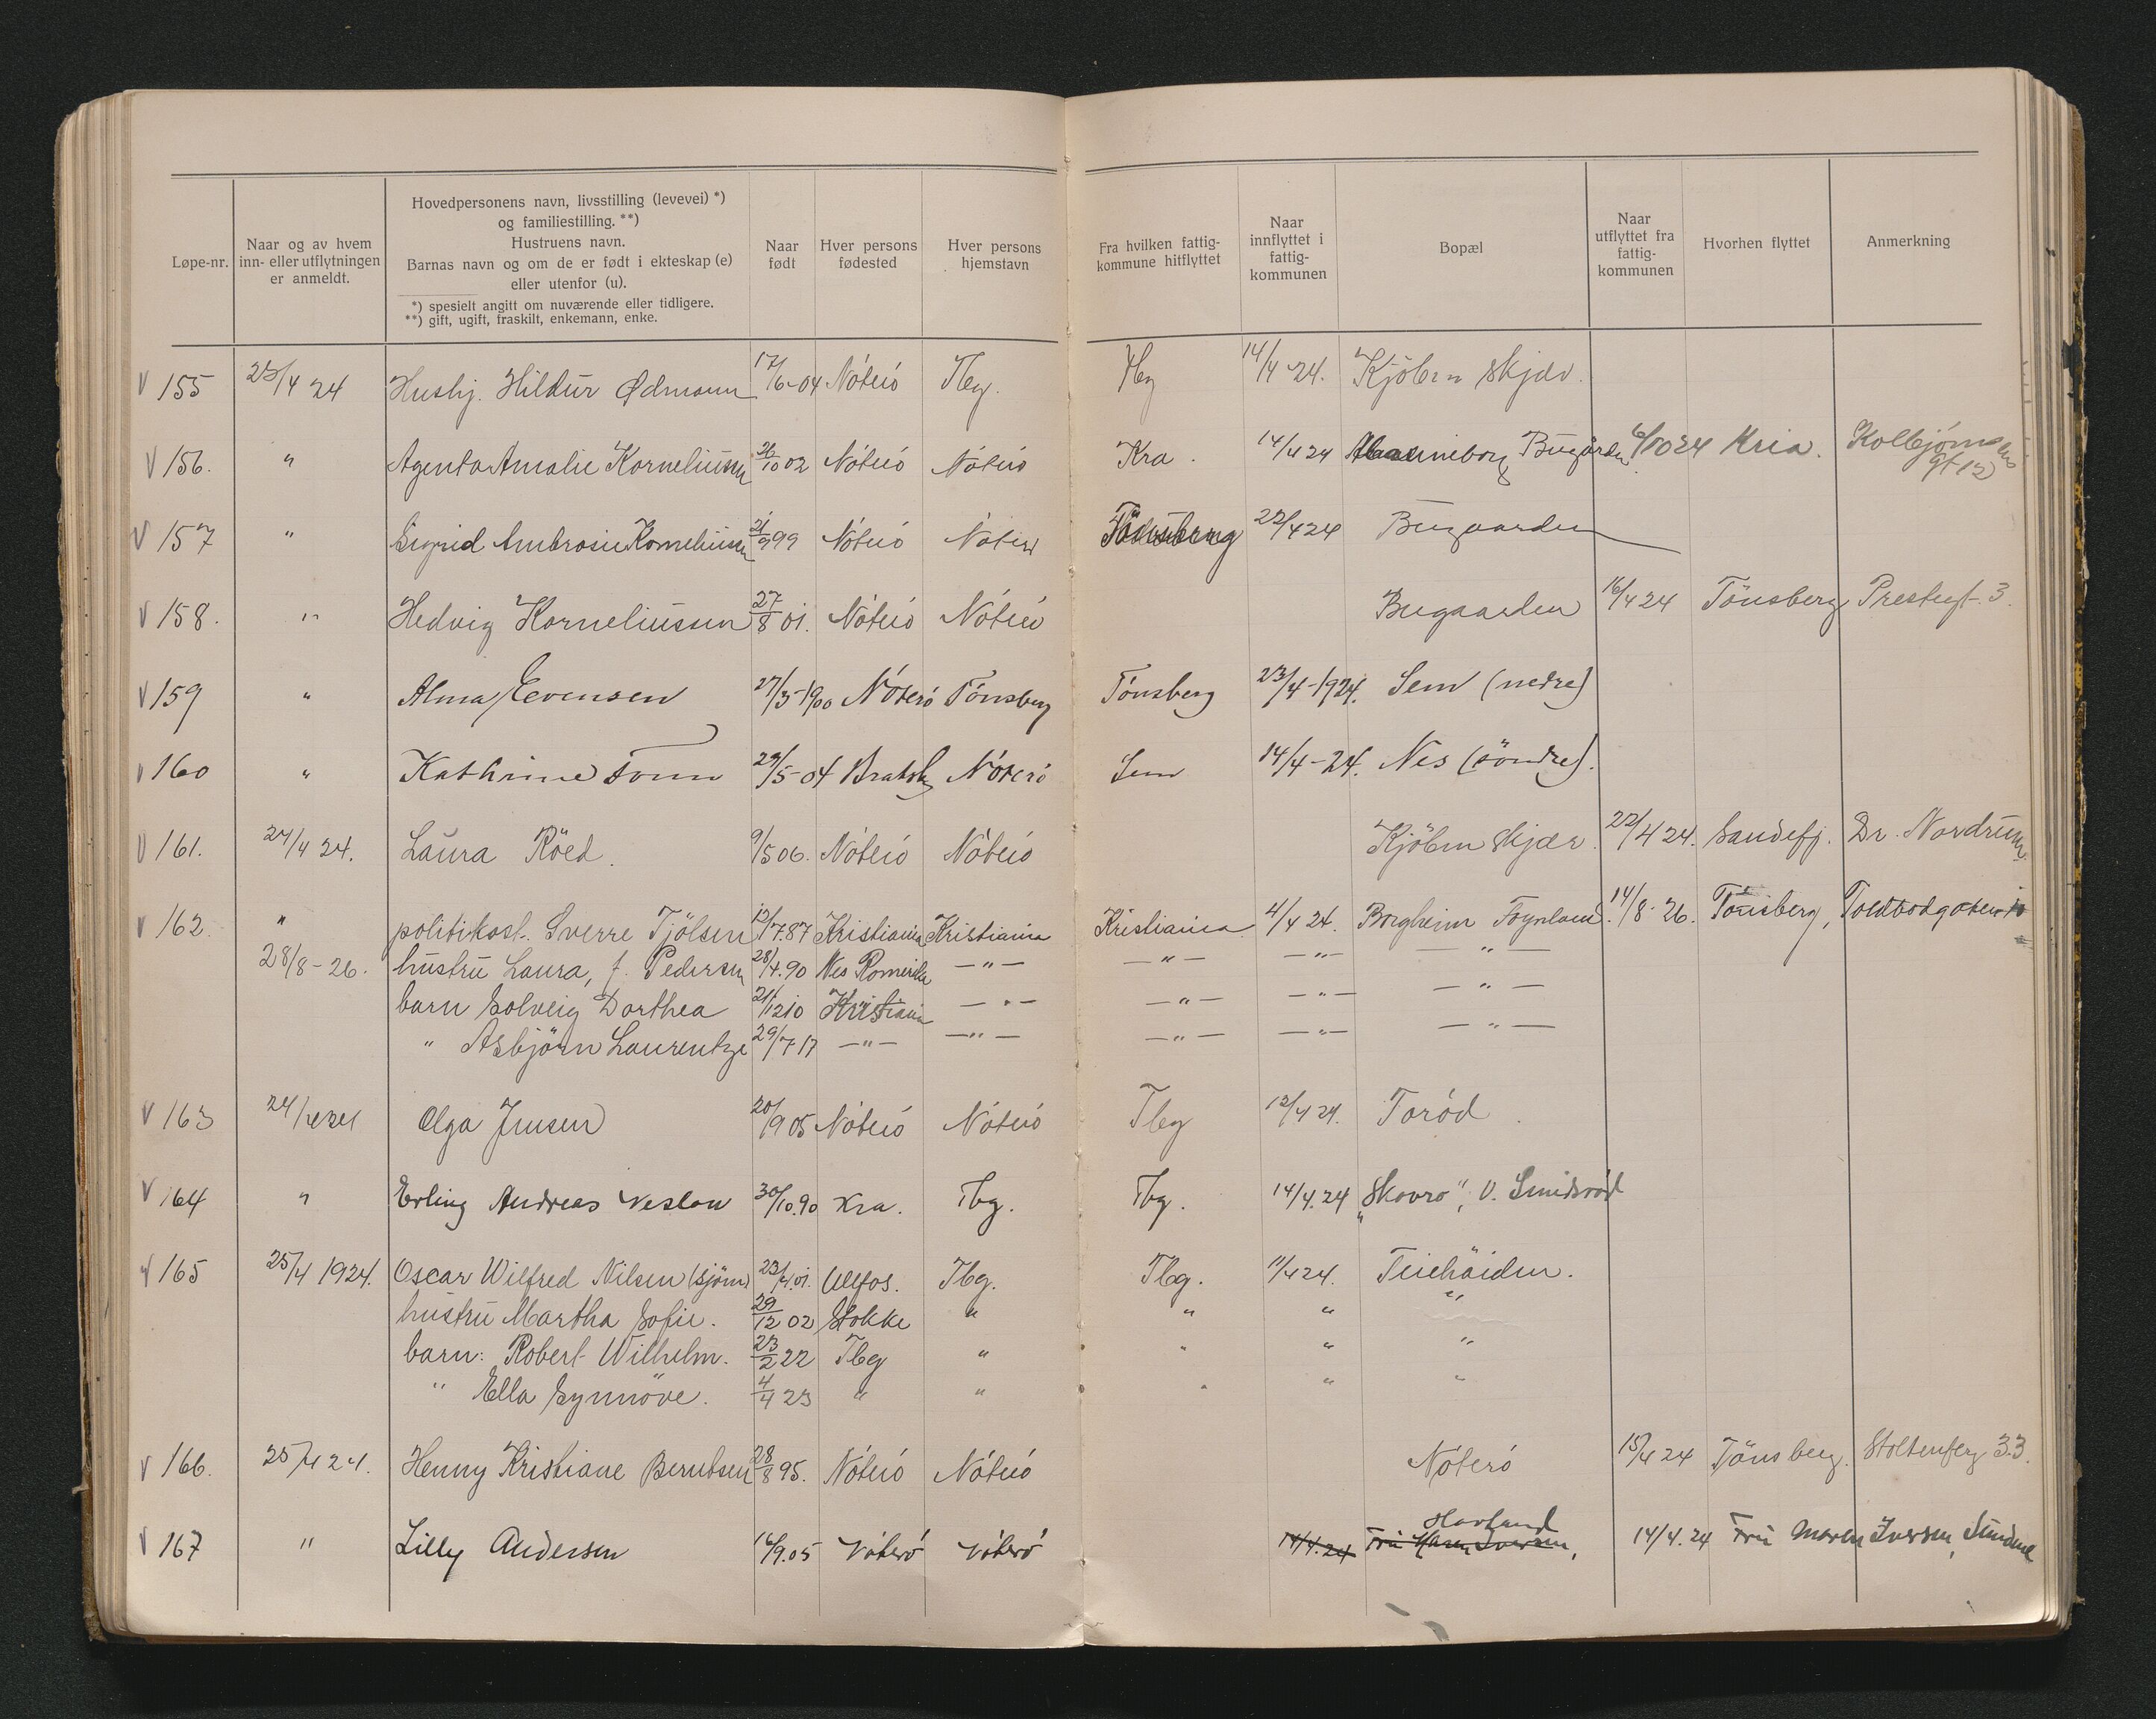 Løpe-nr. Naar og av hvem inn- eller utflytningen er anmeldt. Hovedpersonens navn, livsstilling (levevei) *) og familiestilling. **) Hustruens navn. Barnas navn og om de er født i ekteskap (e) eller utenfor (u). *) spesielt angitt om nuværende eller tidligere. **) gift, ugift, fraskilt, enkemann, enke. Naar født Hver persons fødested Hver persons hjemstavn Fra hvilken fattig-kommune hitflyttet Naar innflyttet i fattig-kommunen Bopæl Naar utflyttet fra fattig-kommunen Hvorhen flyttet Anmerkning
V 155 23/4 24 Hushj. Hildur Ødmann 17/6-04 Nóteró Tbg. Tbg 14/4-24. Kjöbmskjær.
V 156. " Agenta Amalie Korneliussen 26/10 02 Nóteró Nóteró Kra. 14/4 24 Bugården 6/10 24 Kria. Kolbjörnsens gt 12
V 157 " Sigrid Ambrosie Korneliussen 21/9 99 Nóteró Nóteró Tönsberg 22/4 24 Bugaarden
V 158. " Hedvig Korneliussen 27/8 01. Nóteró Nóteró Bugaarden 16/4 24 Tönsberg Prestegt. 3.
V 159 " Alma Evensen 27/3-1900 Nóteró Tönsberg Tónsberg 23/4-1924. Sem (nedre)
V 160 " Kathrine Tonn 29/5-04 Bratsb. Nóteró Sem 14/4-24. Nes (söndre).
V 161. 24/4 24. Laura Röed. 9/5 06. Nóteró Nóteró Kjöbmskjær 22/4 24. Sandefj. Dr. Nordrum
V 162. " politikonst. Sverre Tjölsen 12/7.87 Kristiania Kristiania Kristiania 4/4 24. Borgheim Föynland. 14/8-26. Tönsberg, Toldbodgaten
28/8-26. hustru Laura, f. Pedersen 28/4.90 Nes Romerike —"— —"— —"— —"—
barn Solveig Dorthea 21/12 10 Kristiania —"— —"— —"— —"—
" Asbjörn Laurentze 29/7 17 —"— —"— —"— —"— —"—
V 163 24/4 24 Olga Jensen 20/9 05 Nóteró Nóteró Tbg 12/4 24. Toród.
V 164 " Erling Andreas Neslow 30/10.90 Kra. Tbg. Tbg. 14/4.24 „Skovro", v. Smidsród
V 165 25/4 1924. Oscar Wilfred Nilsen (sjöm) 23/4.01. Ulefos. Tbg. Tbg. 11/4 24. Teiehöiden.
hustru Martha Sofie. 29/12 02 Stokke " " " "
barn: Robert Wilhelm. 23/2 22 Tbg " " " "
" Ella Synnöve. 4/4 23 " " " " "
V 166. 25/4 24. Henny Kristiane Berntsen 28/8 95. Nóteró Nóteró Nóteró 15/4 24 Tönsberg. Stoltenbg 33.
Havland
V 167 " Lilly Andersen 16/9.05 Nóteró Nóteró 14/4.24 Fru Maren Iversen, 14/4.24 Fru Maren Iversen,